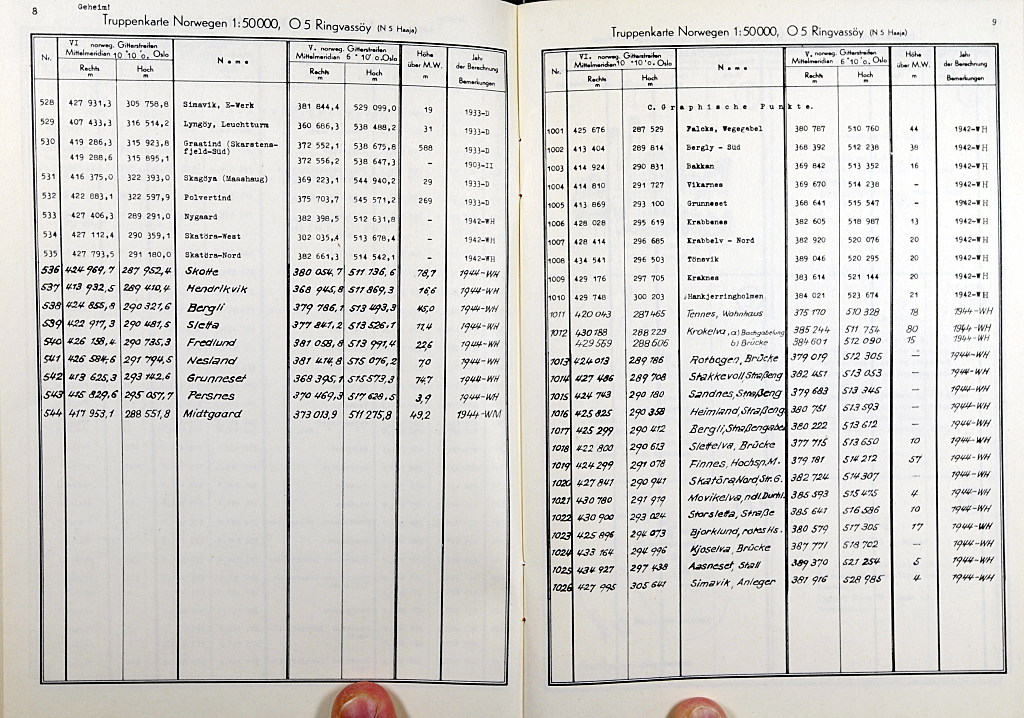 8
Geheim!
Truppenkarte Norwegen 1:50000, O 5 Ringvassöy (N 5 Haaja)
Nr.
VI norweg. Gitterstreifen
Mittelmeridian 10°10'ö. Oslo
Rechts m
Hoch m
N a m e
V. norweg. Gitterstreifen
Mittelmeridian 6°10'ö. Oslo
Rechts m
Hoch m
Höhe über M.W. m
Jahr der Berechnung
Bemerkungen
528 427 931,3 305 758,8 Simavik, E-Werk 381 844,4 529 099,0 19 1933-D
529 407 433,3 316 514,2 Lyngöy, Leuchtturm 360 686,3 538 488,2 31 1933-D
530 419 286,3 315 923,8 Graatind (Skarstens- 372 552,1 538 675,8 588 1933-D
419 288,6 315 895,1 fjeld-Süd) 372 556,2 538 647,3 – 1903-II
531 416 375,0 322 393,0 Skagöya (Maashaug) 369 223,1 544 940,2 29 1933-D
532 422 883,1 322 597,9 Polvertind 375 703,7 545 571,2 269 1933-D
533 427 406,3 289 291,0 Nygaard 382 398,5 512 631,8 – 1942-WH
534 427 112,4 290 359,1 Skatöra-West 382 035,4 513 678,4 – 1942-WH
535 427 793,5 291 180,0 Skatöra-Nord 382 661,3 514 542,1 – 1942-WH
536 424 969,7 287 952,4 Skolte 380 054,7 511 736,6 78,7 1944-WH
537 413 932,5 289 410,4 Hendrikvik 368 945,8 511 869,3 16,6 1944-WH
538 424 855,8 290 321,6 Bergli 379 786,1 513 493,3 45,0 1944-WH
539 422 917,3 290 481,5 Sletta 377 841,2 513 526,1 11,4 1944-WH
540 426 158,4 290 735,3 Fredlund 381 058,8 513 991,4 22,6 1944-WH
541 426 584,6 291 794,5 Nesland 381 414,8 515 076,2 7,0 1944-WH
542 413 625,3 293 142,6 Grunneset 368 395,1 515 573,3 14,7 1944-WH
543 415 829,6 295 057,7 Persnes 370 469,3 517 628,5 3,9 1944-WH
544 417 953,1 288 551,8 Midtgaard 373 013,9 511 275,8 49,2 1944-WM
9
Truppenkarte Norwegen 1:50000, O 5 Ringvassöy (N 5 Haaja)
Nr.
VI. norweg. Gitterstreifen
Mittelmeridian 10°10'ö. Oslo
Rechts m
Hoch m
N a m e
V. norweg. Gitterstreifen
Mittelmeridian 6°10'ö. Oslo
Rechts m
Hoch m
Höhe über M.W. m
Jahr der Berechnung
Bemerkungen
C. G r a p h i s c h e P u n k t e .
1001 425 676 287 529 Falcks, Wegegabel 380 787 510 760 44 1942-WH
1002 413 404 289 814 Bergly - Süd 368 392 512 238 38 1942-WH
1003 414 924 290 831 Bakkan 369 842 513 352 16 1942-WH
1004 414 810 291 727 Vikarnes 369 670 514 238 – 1942-WH
1005 413 869 293 100 Grunneset 368 641 515 547 – 1942-WH
1006 428 028 295 619 Krabbenes 382 605 518 987 13 1942-WH
1007 428 414 296 685 Krabbelv - Nord 382 920 520 076 20 1942-WH
1008 434 541 296 503 Tönsvik 389 046 520 295 20 1942-WH
1009 429 176 297 705 Kraknes 383 614 521 144 20 1942-WH
1010 429 748 300 203 Hankjerringholmen 384 021 523 674 21 1942-WH
1011 420 043 287 465 Tennes, Wohnhaus 375 170 510 328 18 1944-WH
1012 430 188 288 229 Krokelva, a) Bachgabelung 385 244 511 754 80 1944-WH
429 559 288 606 b) Brücke 384 601 512 090 15 1944-WH
1013 424 013 289 786 Rotbogen, Brücke 379 019 512 305 — 1944-WH
1014 427 486 289 708 Stakkevoll, Straßeng 382 451 513 053 — 1944-WH
1015 424 743 290 180 Sandnes, Straßeng 379 683 513 345 — 1944-WH
1016 425 825 290 358 Heimland, Straßeng 380 751 513 593 — 1944-WH
1017 425 299 290 412 Bergli, Straßengabel 380 222 513 612 — 1944-WH
1018 422 800 290 613 Slettelva, Brücke 377 715 513 650 10 1944-WH
1019 424 299 291 078 Finnes, Hochsp. M. 379 181 514 212 57 1944-WH
1020 427 841 290 941 Skatöra, Nord, Str. G. 382 724 514 307 — 1944-WH
1021 430 780 291 919 Movikelva, ndl. Durchl. 385 593 515 475 4 1944-WH
1022 430 900 293 024 Storsletta, Straße 385 641 516 586 10 1944-WH
1023 425 896 294 073 Bjorklund, rotes Hs. 380 579 517 305 17 1944-WH
1024 433 164 294 996 Kjoselva, Brücke 387 771 518 702 — 1944-WH
1025 434 927 297 438 Aasneset, Stall 389 370 521 254 5 1944-WH
1026 427 995 305 641 Simavik, Anleger 381 916 528 985 4 1944-WH